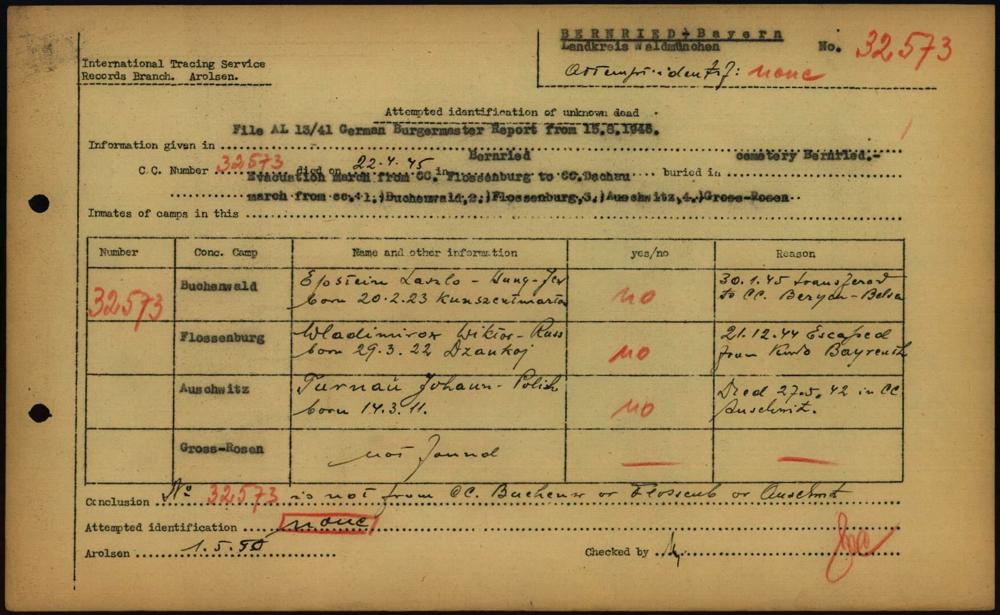 BERNRIED-Bayern
Landkreis Waldmünchen
No. 32573
International Tracing Service
Records Branch. Arolsen.
Attempt. identif: none
Attempted identification of unknown dead
File AL 13/41 German Burgermaster Report from
Information given in
Bernried cemetery Bernried.-
C.C. Number 32573 died on 22.4.45 in buried in
Evacuation march from CC. Flossenburg to CC.Dachau
march from cc. 1.)Buchenwald,2.)Flossenburg,3.)Auschwitz,4.)Gross-Rosen
Inmates of camps in this
Number Conc. Camp Name and other information yes/no Reason
32573 Buchenwald Epstein Laszlo - Hung-Jew no 30.1.45 transferred
born 20.2.23 Kunszentmarton to CC. Bergen-Belsen
Flossenburg Wladimirow Wiktor-Russ no 21.12.44 Escaped
born 29.3.22 Dzankoj from Kdo Bayreuth
Auschwitz Turnau Johann-Polish no Died 27.5.42 in CC
born 14.3.11. Auschwitz.
Gross-Rosen not found — —
Conclusion No 32573 is not from CC. Buchenw or Flossenb or Auschwit
Attempted identification none
Arolsen 1.5.50 Checked by